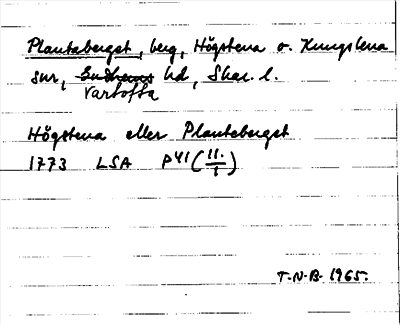 Plantaberget, berg, Högstena o. Kungslena
snr, Gudhems hd, Skar. l.
Vartofta
Högstena eller Planteberget
1773 LSA P41 (11./1)
T.N.B. 1965.